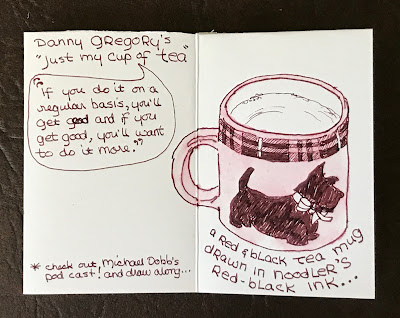 Danny Gregory's
"just my cup of tea"
"If you do it on a
regular basis, you'll
get good and if you
get good, you'll want
to do it more."
* check out, Michael Dobb's
pod cast! and draw along...
a Red & black tea mug
drawn in Noodler's
Red-black ink...